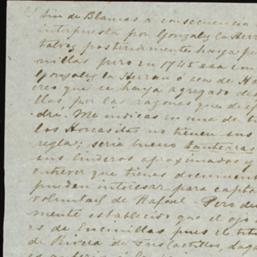 de Blancas a consecuencia
interpuesta por Gonzalez la Herr
posteriormente haya po
millas pero en 1745 esa con
Gonzalez la Herran ó son de Ho
creo que se haya agregado de
llas, por las razones que des
dre. Me indicas en una de t
los Horcasitas no tienen sus
regla; seria bueno
sus linderos aproximados y
entrever que tienes documen
pueden interesar para
voluntad de Rafael. Pero de
mente establecido que el ojo
es de Encinillas pues el tit
de Rivera de